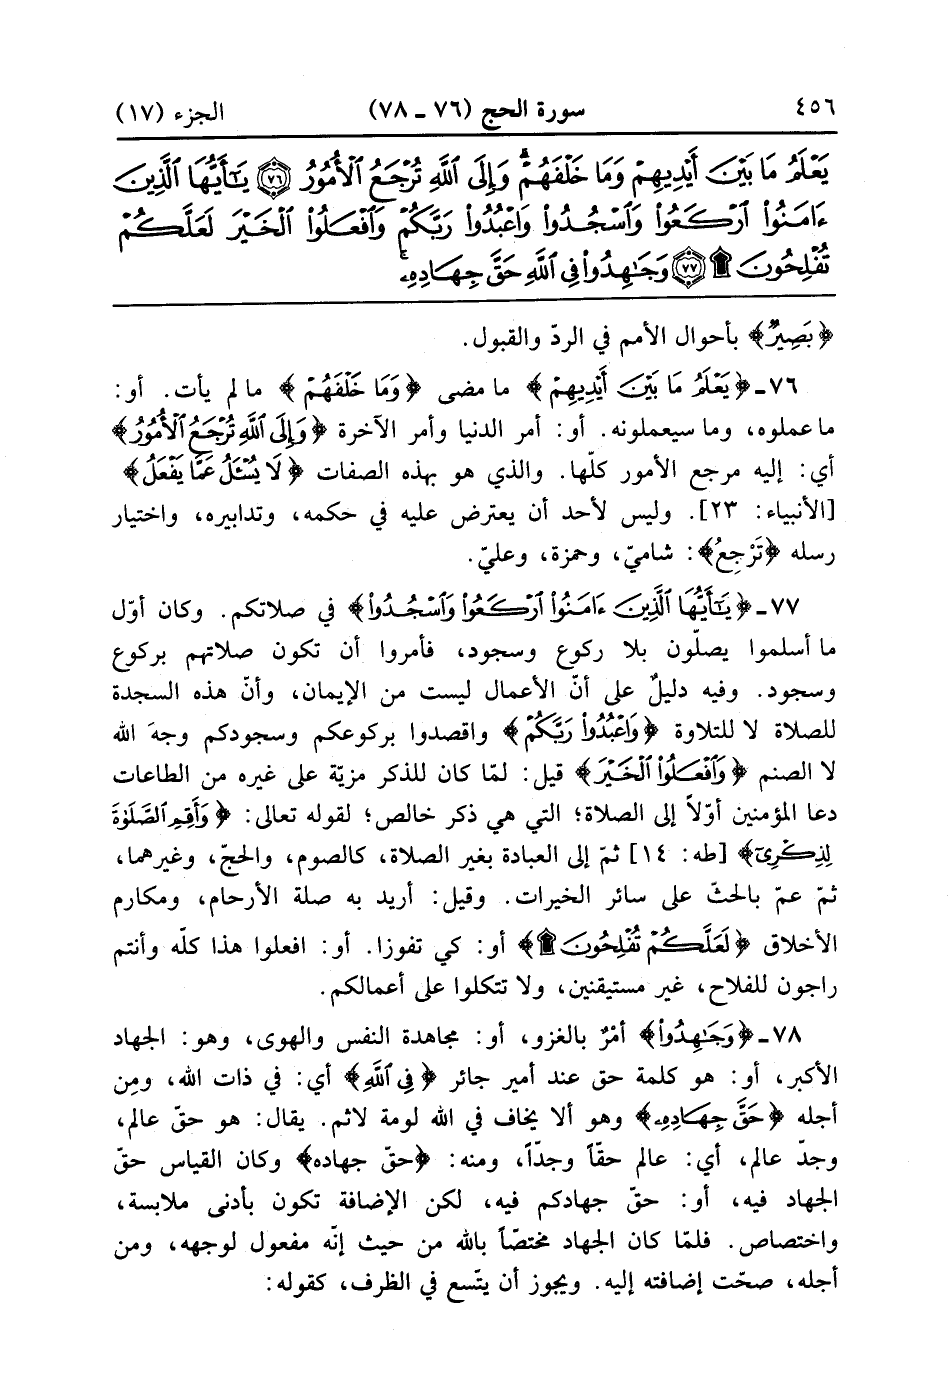 ٤٥٦ سورة الحج (٧٦ ـ ٧٨) الجزء (١٧)
يَعْلَمُ مَا بَيْنَ أَيْدِيهِمْ وَمَا خَلْفَهُمْ ۗ وَإِلَى ٱللَّهِ تُرْجَعُ ٱلْأُمُورُ ﴿٧٦﴾ يَٰٓأَيُّهَا ٱلَّذِينَ
ءَامَنُوا۟ ٱرْكَعُوا۟ وَٱسْجُدُوا۟ وَٱعْبُدُوا۟ رَبَّكُمْ وَٱفْعَلُوا۟ ٱلْخَيْرَ لَعَلَّكُمْ
تُفْلِحُونَ ۩ ﴿٧٧﴾ وَجَٰهِدُوا۟ فِى ٱللَّهِ حَقَّ جِهَادِهِۦ ۚ
﴿بَصِيرٌ﴾ بأحوال الأمم في الردّ والقبول.
٧٦ ـ ﴿يَعْلَمُ مَا بَيْنَ أَيْدِيهِمْ﴾ ما مضى ﴿وَمَا خَلْفَهُمْ﴾ ما لم يأت. أو:
ما عملوه، وما سيعملونه. أو: أمر الدنيا وأمر الآخرة ﴿وَإِلَى ٱللَّهِ تُرْجَعُ ٱلْأُمُورُ﴾
أي: إليه مرجع الأمور كلّها. والذي هو بهذه الصفات ﴿لَا يُسْـَٔلُ عَمَّا يَفْعَلُ﴾
[الأنبياء: ٢٣]. وليس لأحد أن يعترض عليه في حكمه، وتدابيره، واختيار
رسله ﴿تَرْجِعُ﴾: شاميّ، وحمزة، وعليّ.
٧٧ ـ ﴿يَٰٓأَيُّهَا ٱلَّذِينَ ءَامَنُوا۟ ٱرْكَعُوا۟ وَٱسْجُدُوا۟﴾ في صلاتكم. وكان أوّل
ما أسلموا يصلّون بلا ركوع وسجود، فأمروا أن تكون صلاتهم بركوع
وسجود. وفيه دليلٌ على أنّ الأعمال ليست من الإيمان، وأنّ هذه السجدة
للصلاة لا للتلاوة ﴿وَٱعْبُدُوا۟ رَبَّكُمْ﴾ واقصدوا بركوعكم وسجودكم وجهَ الله
لا الصنم ﴿وَٱفْعَلُوا۟ ٱلْخَيْرَ﴾ قيل: لمّا كان للذكر مزيّة على غيره من الطاعات
دعا المؤمنين أوّلاً إلى الصلاة؛ التي هي ذكر خالص؛ لقوله تعالى: ﴿وَأَقِمِ ٱلصَّلَوٰةَ
لِذِكْرِىٓ﴾ [طه: ١٤] ثمّ إلى العبادة بغير الصلاة، كالصوم، والحجّ، وغيرهما،
ثمّ عمّ بالحثّ على سائر الخيرات. وقيل: أريد به صلة الأرحام، ومكارم
الأخلاق ﴿لَعَلَّكُمْ تُفْلِحُونَ ۩﴾ أو: كي تفوزا. أو: افعلوا هذا كلّه وأنتم
راجون للفلاح، غير مستيقنين، ولا تتكلوا على أعمالكم.
٧٨ ـ ﴿وَجَٰهِدُوا۟﴾ أمْرٌ بالغزو، أو: مجاهدة النفس والهوى، وهو: الجهاد
الأكبر، أو: هو كلمة حق عند أمير جائر ﴿فِى ٱللَّهِ﴾ أي: في ذات الله، ومِن
أجله ﴿حَقَّ جِهَادِهِۦ﴾ وهو ألا يخاف في الله لومة لائم. يقال: هو حقّ عالم،
وجدّ عالم، أي: عالم حقاً وجدّاً، ومنه: ﴿حقّ جهاده﴾ وكان القياس حقّ
الجهاد فيه، أو: حقّ جهادكم فيه، لكن الإضافة تكون بأدنى ملابسة،
واختصاص. فلمّا كان الجهاد مختصّاً بالله من حيث إنّه مفعول لوجهه، ومن
أجله، صحّت إضافته إليه. ويجوز أن يتّسع في الظرف، كقوله: